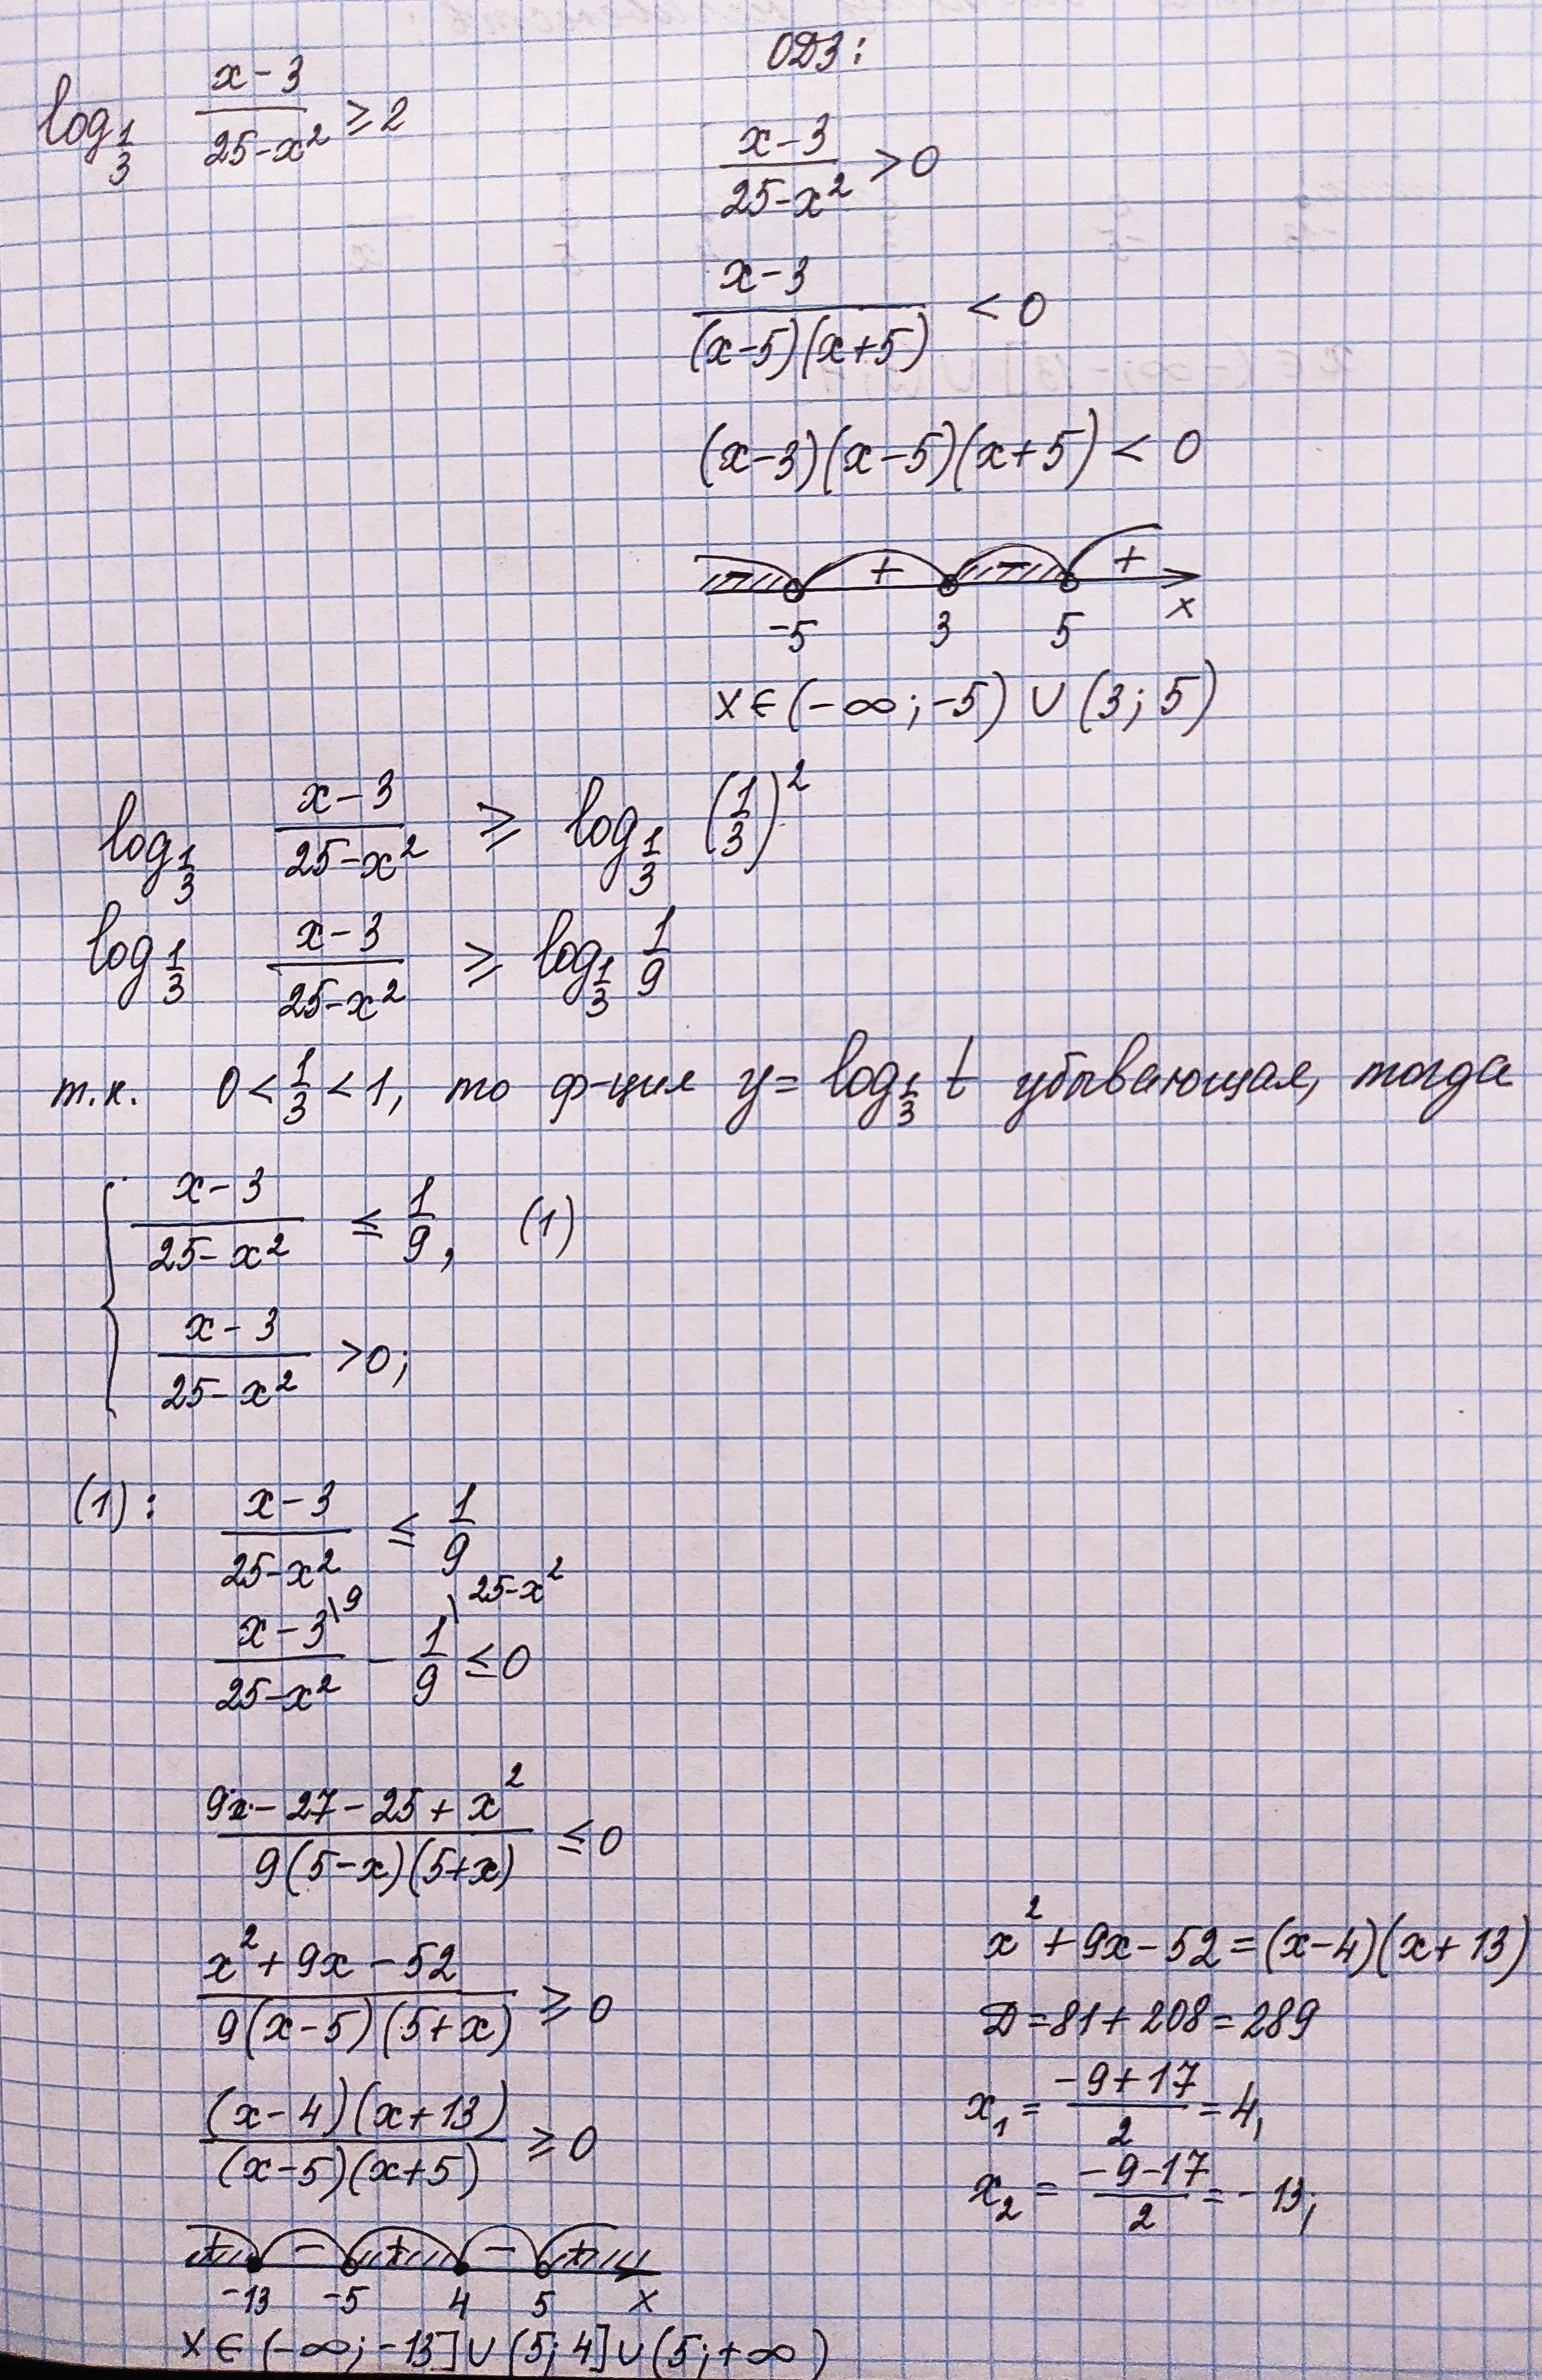 log_{1/3} (x-3)/(25-x²) ≥ 2
ОДЗ:
(x-3)/(25-x²) > 0
(x-3)/((x-5)(x+5)) < 0
(x-3)(x-5)(x+5) < 0
- + - +
-5 3 5 x
x∈(-∞;-5)∪(3;5)
log_{1/3} (x-3)/(25-x²) ≥ log_{1/3} (1/3)²
log_{1/3} (x-3)/(25-x²) ≥ log_{1/3} 1/9
т.к. 0<1/3<1, то ф-ция y=log_{1/3} t убывающая, тогда
{ (x-3)/(25-x²) ≤ 1/9, (1)
(x-3)/(25-x²) >0;
(1): (x-3)/(25-x²) ≤ 1/9
(x-3)/(25-x²) \9 - 1/9 \25-x² ≤0
(9x-27-25+x²)/(9(5-x)(5+x)) ≤0
(x²+9x-52)/(9(x-5)(5+x)) ≥0
((x-4)(x+13))/((x-5)(x+5)) ≥0
+ - + - +
-13 -5 4 5 x
x∈(-∞;-13]∪(5;4]∪(5;+∞)
x²+9x-52=(x-4)(x+13)
D=81+208=289
x₁=(-9+17)/2=4,
x₂=(-9-17)/2=-13;